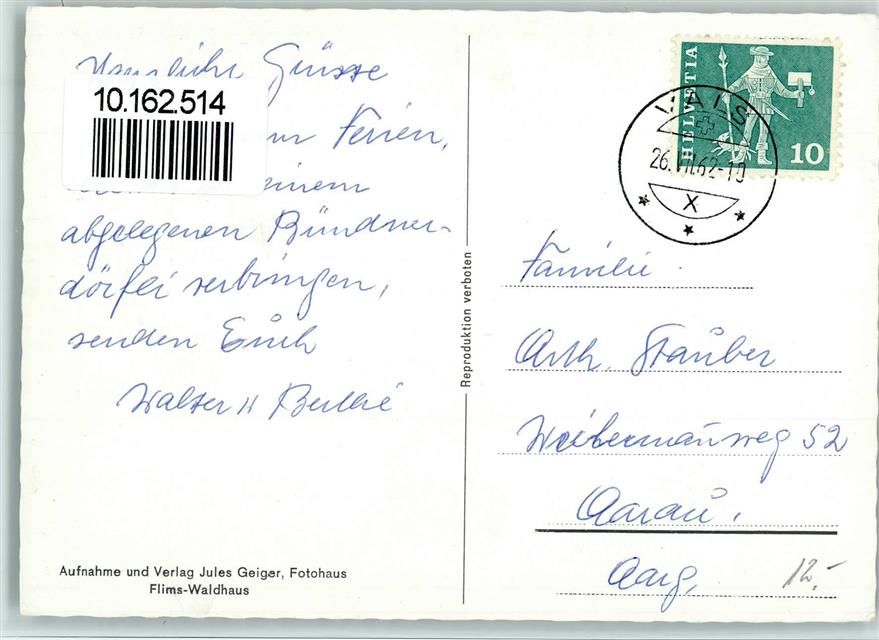 Grüsse
10.162.514
Ferien,
einem
abgelegenen Bündner-
dörfli verbringen,
senden Euch
Walter u
Aufnahme und Verlag Jules Geiger, Fotohaus
Flims-Waldhaus
Reproduktion verboten
HELVETIA
10
VALS
26.VII.62-10
X
Familie
Arth. Stauber
Weihermattweg 52
Aarau.
Aarg.
12.-